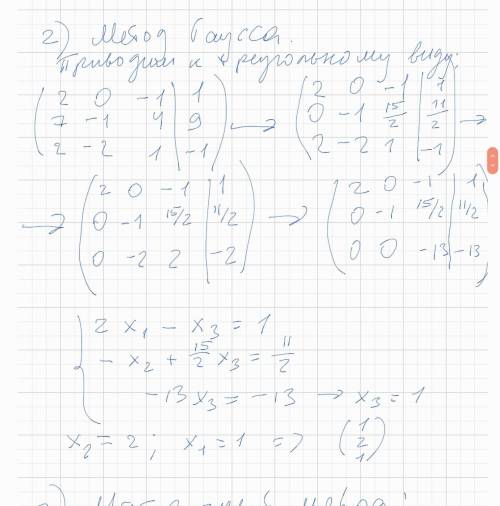 2) Метод Гаусса.
Приводим к треугольному виду:
( 2 0 -1 | 1 ) → ( 2 0 -1 | 1 ) →
( 7 -1 4 | 9 ) ( 0 -1 15/2 | 11/2 )
( 2 -2 1 | -1 ) ( 2 -2 1 | -1 )
→ ( 2 0 -1 | 1 ) → ( 2 0 -1 | 1 )
( 0 -1 15/2 | 11/2 ) ( 0 -1 15/2 | 11/2 )
( 0 -2 2 | -2 ) ( 0 0 -13 | -13 )
{ 2 x₁ - x₃ = 1
- x₂ + 15/2 x₃ = 11/2
-13 x₃ = -13 → x₃ = 1
x₂ = 2 ; x₁ = 1 => ( 1 2 1 )